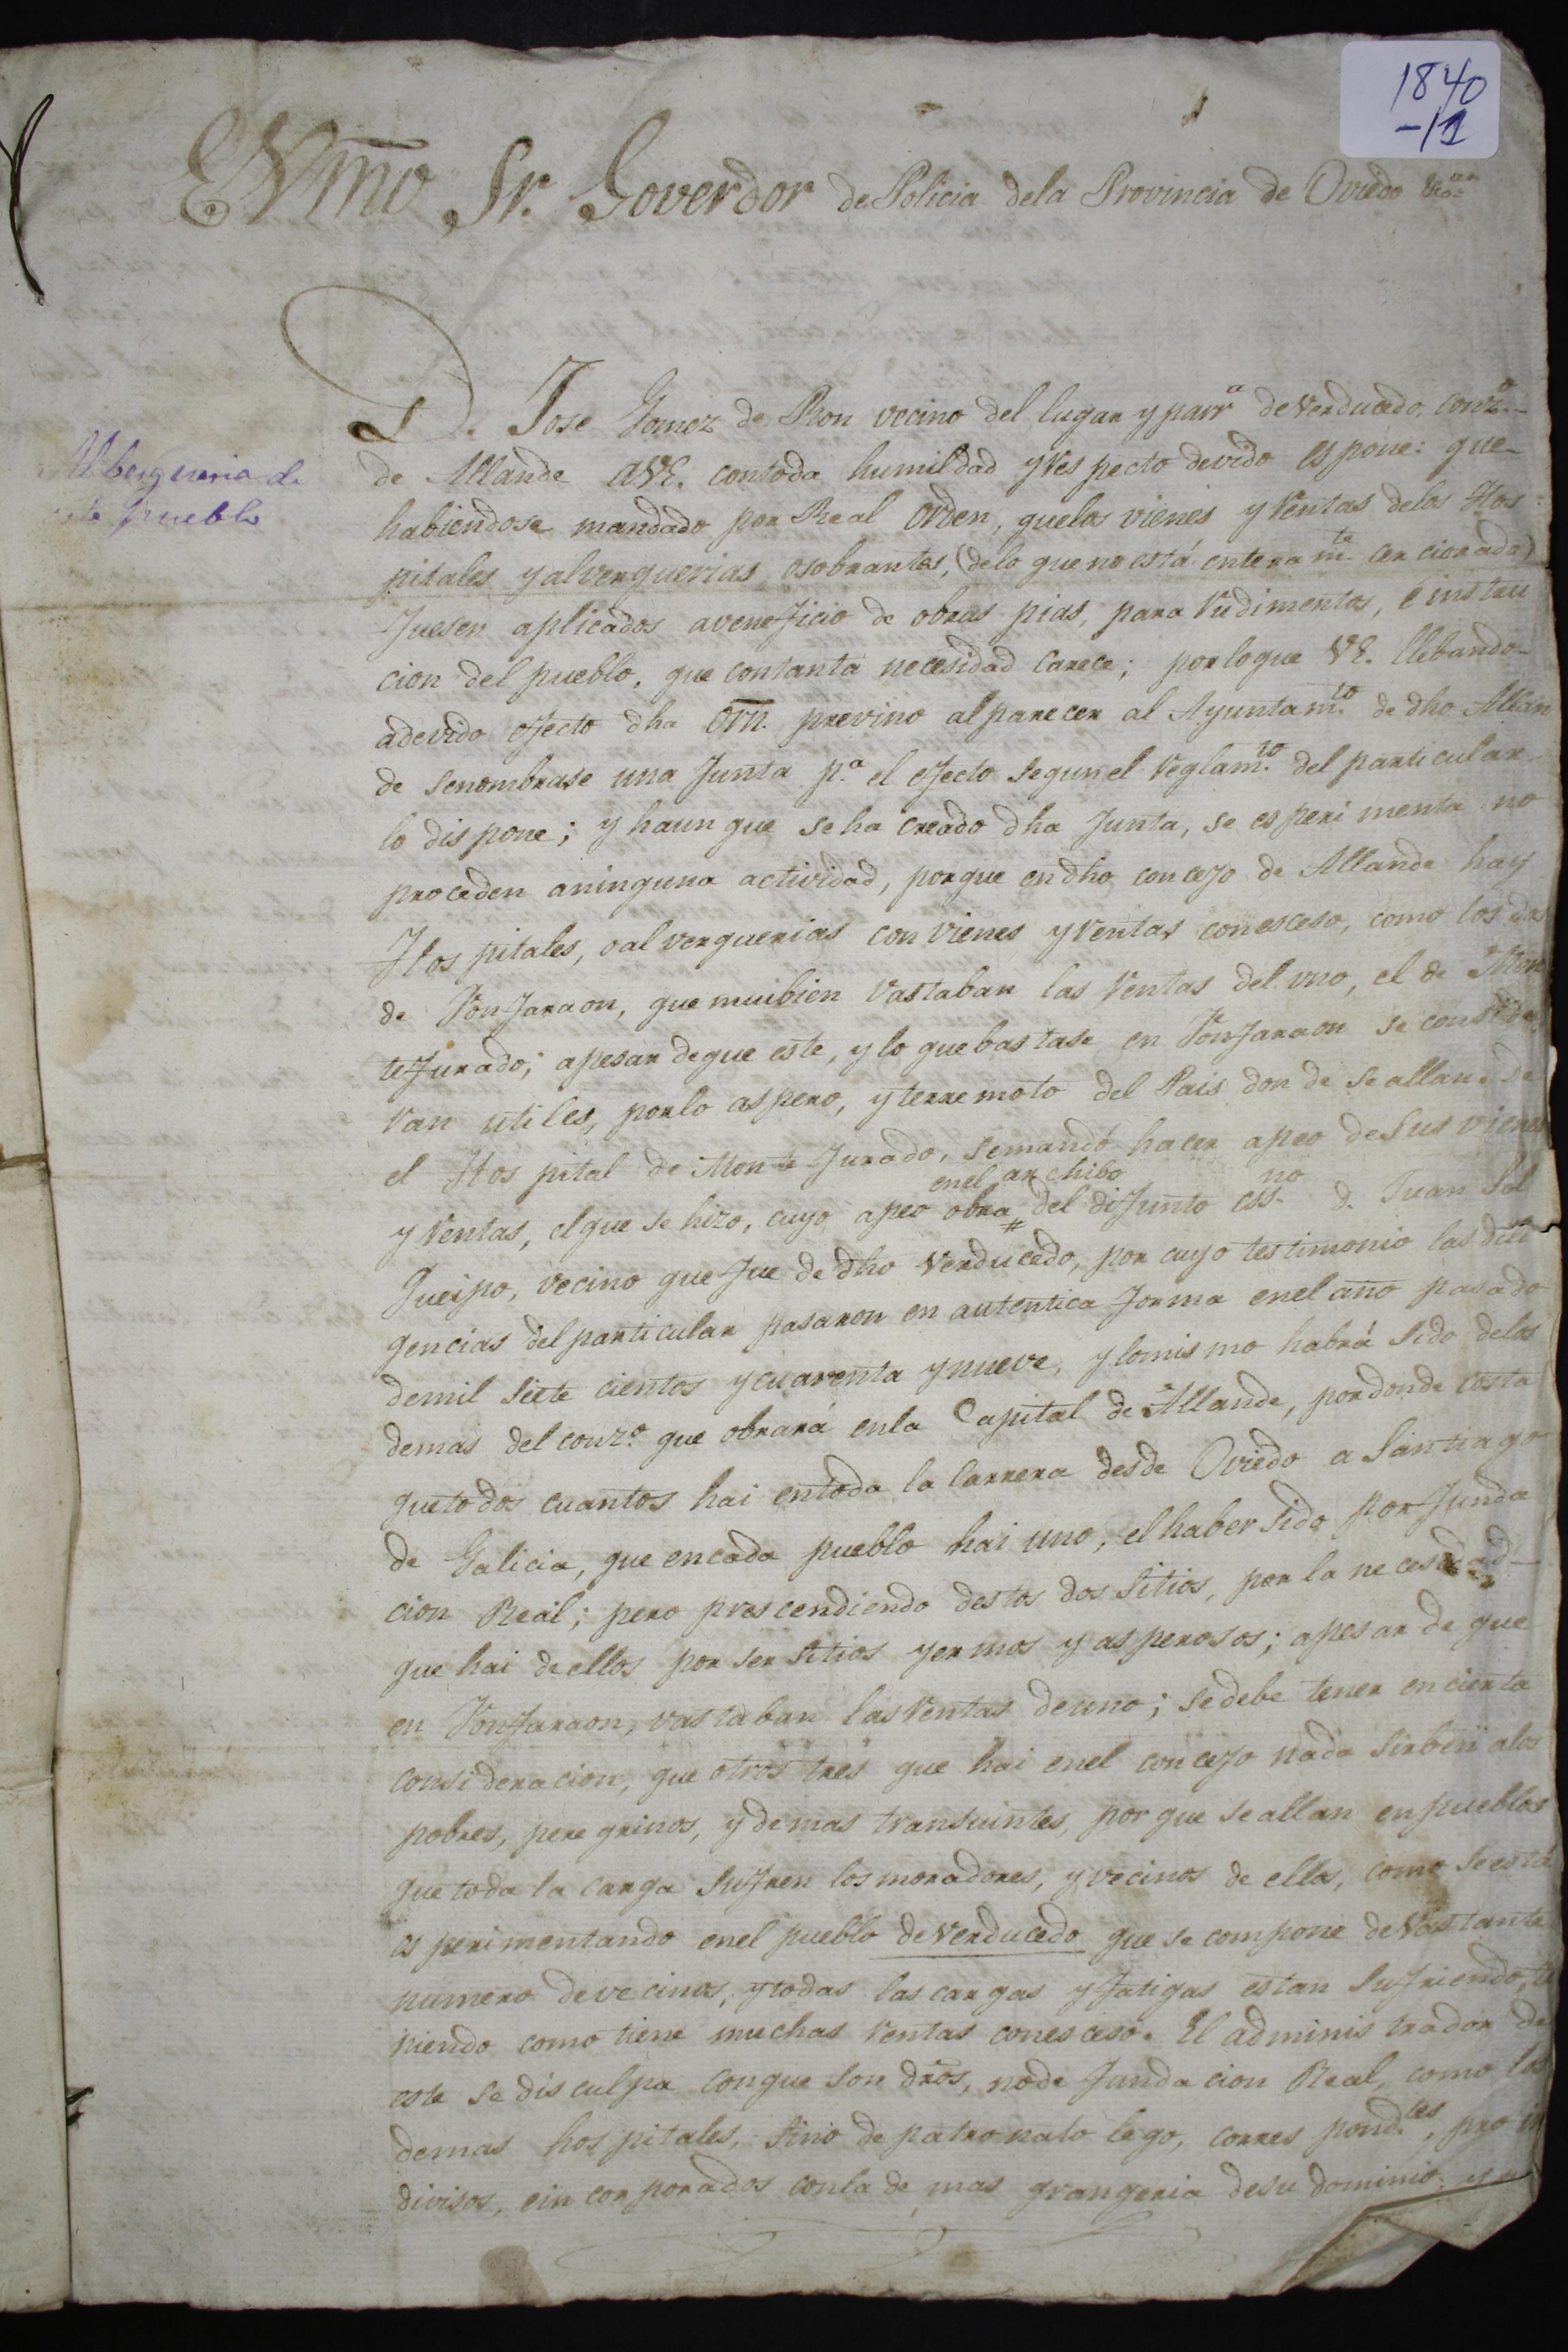 1840
-11
EXmo Sr. Goverdor de Policia dela Provincia de Oviedo
D. Jose Gomez de Ron vecino del lugar y parr.a de Verducedo, conz.o
Albergueria de
este pueblo
de Allande AVE. contoda humildad y Respecto devido espone: que
habiendose mandado por Real Orden, quelos vienes y Rentas delos Hos
pitales y alverguerias osobrantes, (delo que no está enteram.te cerciorado)
fuesen aplicados aveneficio de obras pias, para Rudimentos, é instru
cion del pueblo, que contanta necesidad carece; porloque VE. llebando
adevido efecto dha Orn. previno alparecer al Ayuntam.to de dho Allan
de senombrase una Junta p.a el efecto segun el Reglam.to del particular
lo dispone; y haunque se ha creado dha Junta, se esperimenta no
proceden aninguna actividad, porque en dho concejo de Allande hay
Hospitales, o alverguerias con vienes y Rentas conesceso, como los dos
de Fonfaraon, que muibien Vastaban las Rentas del uno, el de Mon
tefurado; apesar deque este, y lo que bastase en Fonfaraon se conside
ran utiles, porlo aspero, y terremoto del Pais donde se allan. De
el Hospital de Monte Furado, semandó hacer apeo desus vienes
y Rentas, elque se hizo, cuyo apeo obra # del difunto ess.no d. Juan Sol
enel archibo
Queipo, vecino que fue de dho Verducedo, por cuyo testimonio las dili
gencias del particular pasaron en autentica forma enel año pasado
demil siete cientos y cuarenta y nueve, y lomismo habrá sido delos
demas del conz.o que obrará enla Capital de Allande, pordonde costa
quetodos cuantos hai entoda la Carrera desde Oviedo a Santiago
de Galicia, que encada pueblo hai uno, el haber sido por funda
cion Real; pero prescendiendo destos dos sitios, por la necesidad
que hai deellos por ser sitios yermos y asperosos; apesar de que
en Fonfaraon, vastaban las Rentas deuno; sedebe tener encierta
consideracion, que otros tres que hai enel concejo nada sirben alos
pobres, peregrinos, y demas transuintes, por que se allan en pueblos
que toda la carga sufren los moradores, y vecinos de ellos, como se está
esperimentando enel pueblo de Verducedo que se compone de Vastante
numero devecinos, y todas las cargas y fatigas estan sufriendo, te
niendo como tiene muchas Rentas conesceso. El administrador de
este se disculpa conque son dros, node fundacion Real, como los
demas hospitales, sino de patronato lego, correspond.tes, pro in
divisos, eincorporados conla demas grangeria desu dominio: y